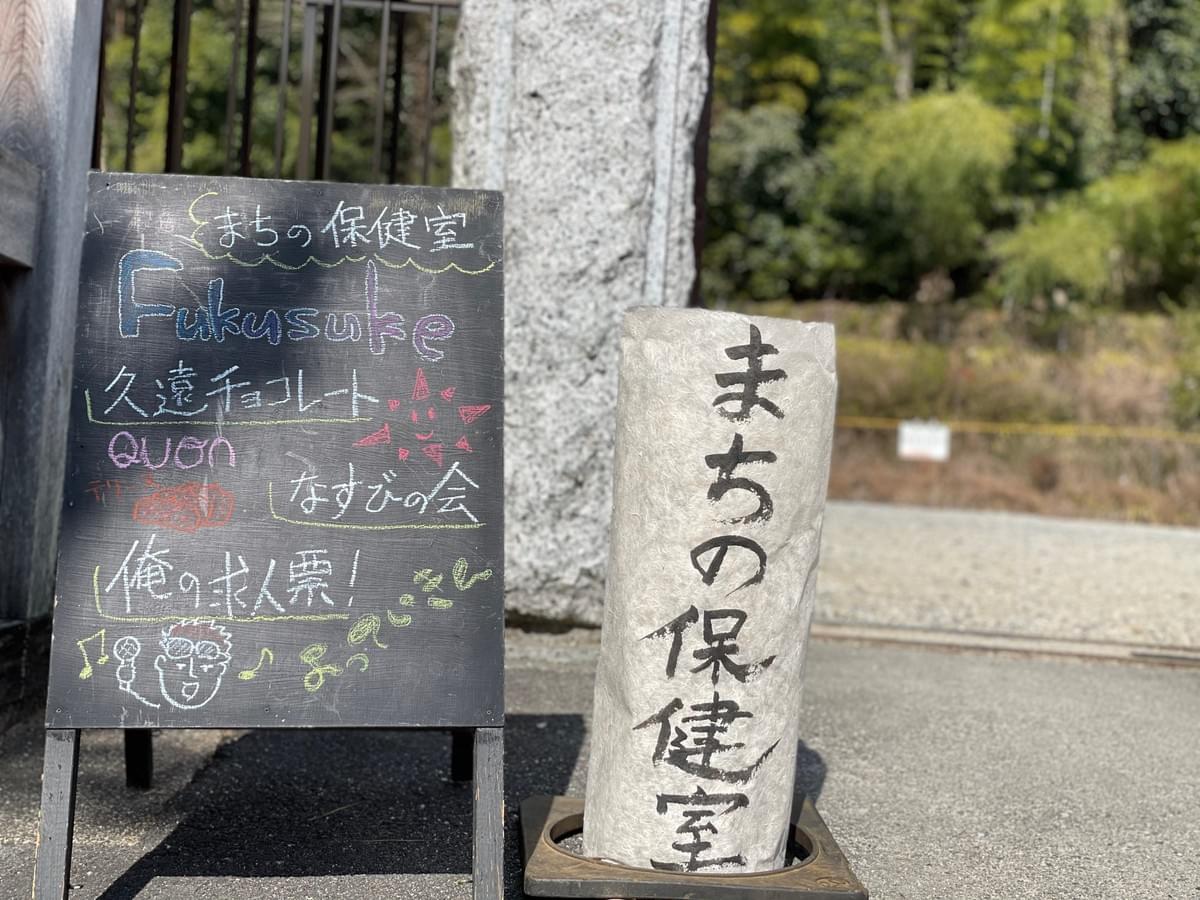 まちの保健室
Fukusuke
久遠チョコレート
QUON
なすびの会
俺の求人票!
まちの保健室